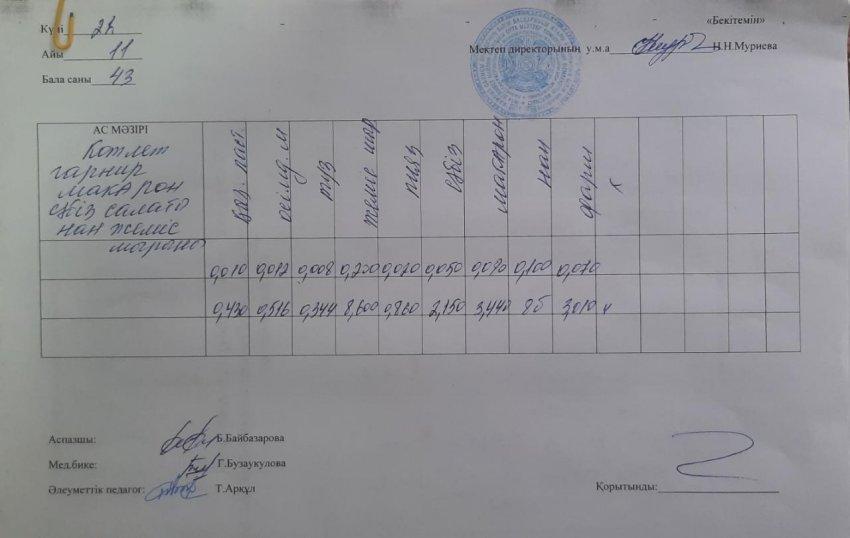 «Бекітемін»
Күні 22
Айы 11
Мектеп директорының у.м.а Н.Н.Муриева
Бала саны 43
АС МӘЗІРІ
Котлет
гарнир
макарон
сәбіз салаты
нан жеміс
шырыны
қыз. паст. өсімд. м тұз жеміс шыр пияз сәбіз макарон нан фарш
0,010 0,012 0,008 0,200 0,020 0,050 0,080 0,100 0,070
0,430 0,516 0,344 8,600 0,860 2,150 3,440 8б 3,010
Аспазшы: Б.Байбазарова
Мед.бике: Г.Бузаукулова
Әлеуметтік педагог: Т.Арқұл
Қорытынды: